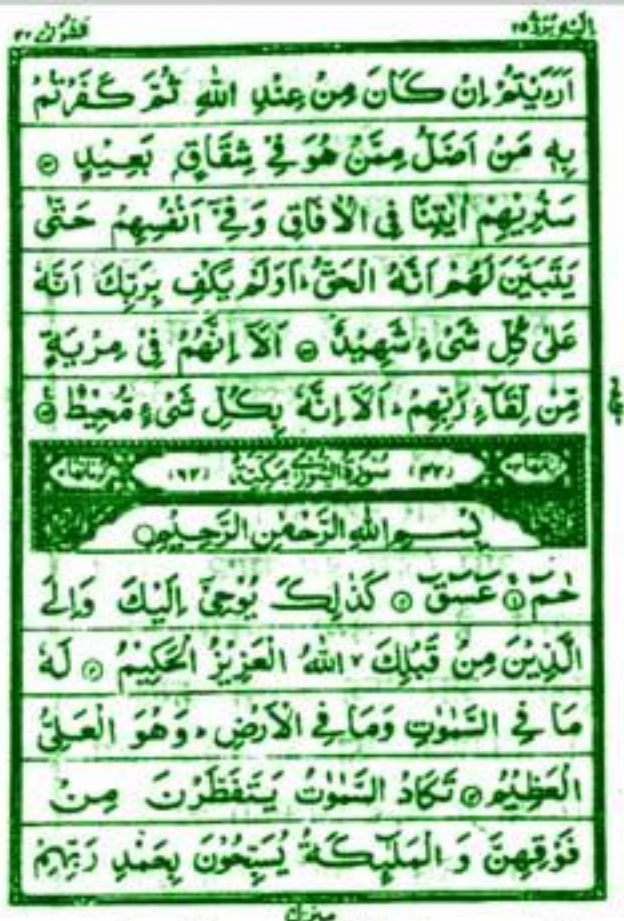 اَرَءَيْتُمْ اِنْ كَانَ مِنْ عِنْدِ اللّٰهِ ثُمَّ كَفَرْتُمْ
بِهٖ مَنْ اَضَلُّ مِمَّنْ هُوَ فِيْ شِقَاقٍۭ بَعِيْدٍ
سَنُرِيْهِمْ اٰيٰتِنَا فِي الْاٰفَاقِ وَفِيْۤ اَنْفُسِهِمْ حَتّٰى
يَتَبَيَّنَ لَهُمْ اَنَّهُ الْحَقُّ اَوَلَمْ يَكْفِ بِرَبِّكَ اَنَّهٗ
عَلٰى كُلِّ شَيْءٍ شَهِيْدٌ اَلَاۤ اِنَّهُمْ فِيْ مِرْيَةٍ
مِّنْ لِّقَآءِ رَبِّهِمْ اَلَاۤ اِنَّهٗ بِكُلِّ شَيْءٍ مُّحِيْطٌ
(٤٢) سُوْرَةُ الشُّوْرٰى مَكِّيَّةٌ (٦٢)
بِسْمِ اللّٰهِ الرَّحْمٰنِ الرَّحِيْمِ
حٰمٓ ١ عٓسٓقٓ ٢ كَذٰلِكَ يُوْحِيْۤ اِلَيْكَ وَاِلَى
الَّذِيْنَ مِنْ قَبْلِكَ اللّٰهُ الْعَزِيْزُ الْحَكِيْمُ ٣ لَهٗ
مَا فِي السَّمٰوٰتِ وَمَا فِي الْاَرْضِ وَهُوَ الْعَلِيُّ
الْعَظِيْمُ ٤ تَكَادُ السَّمٰوٰتُ يَتَفَطَّرْنَ مِنْ
فَوْقِهِنَّ وَ الْمَلٰٓئِكَةُ يُسَبِّحُوْنَ بِحَمْدِ رَبِّهِمْ